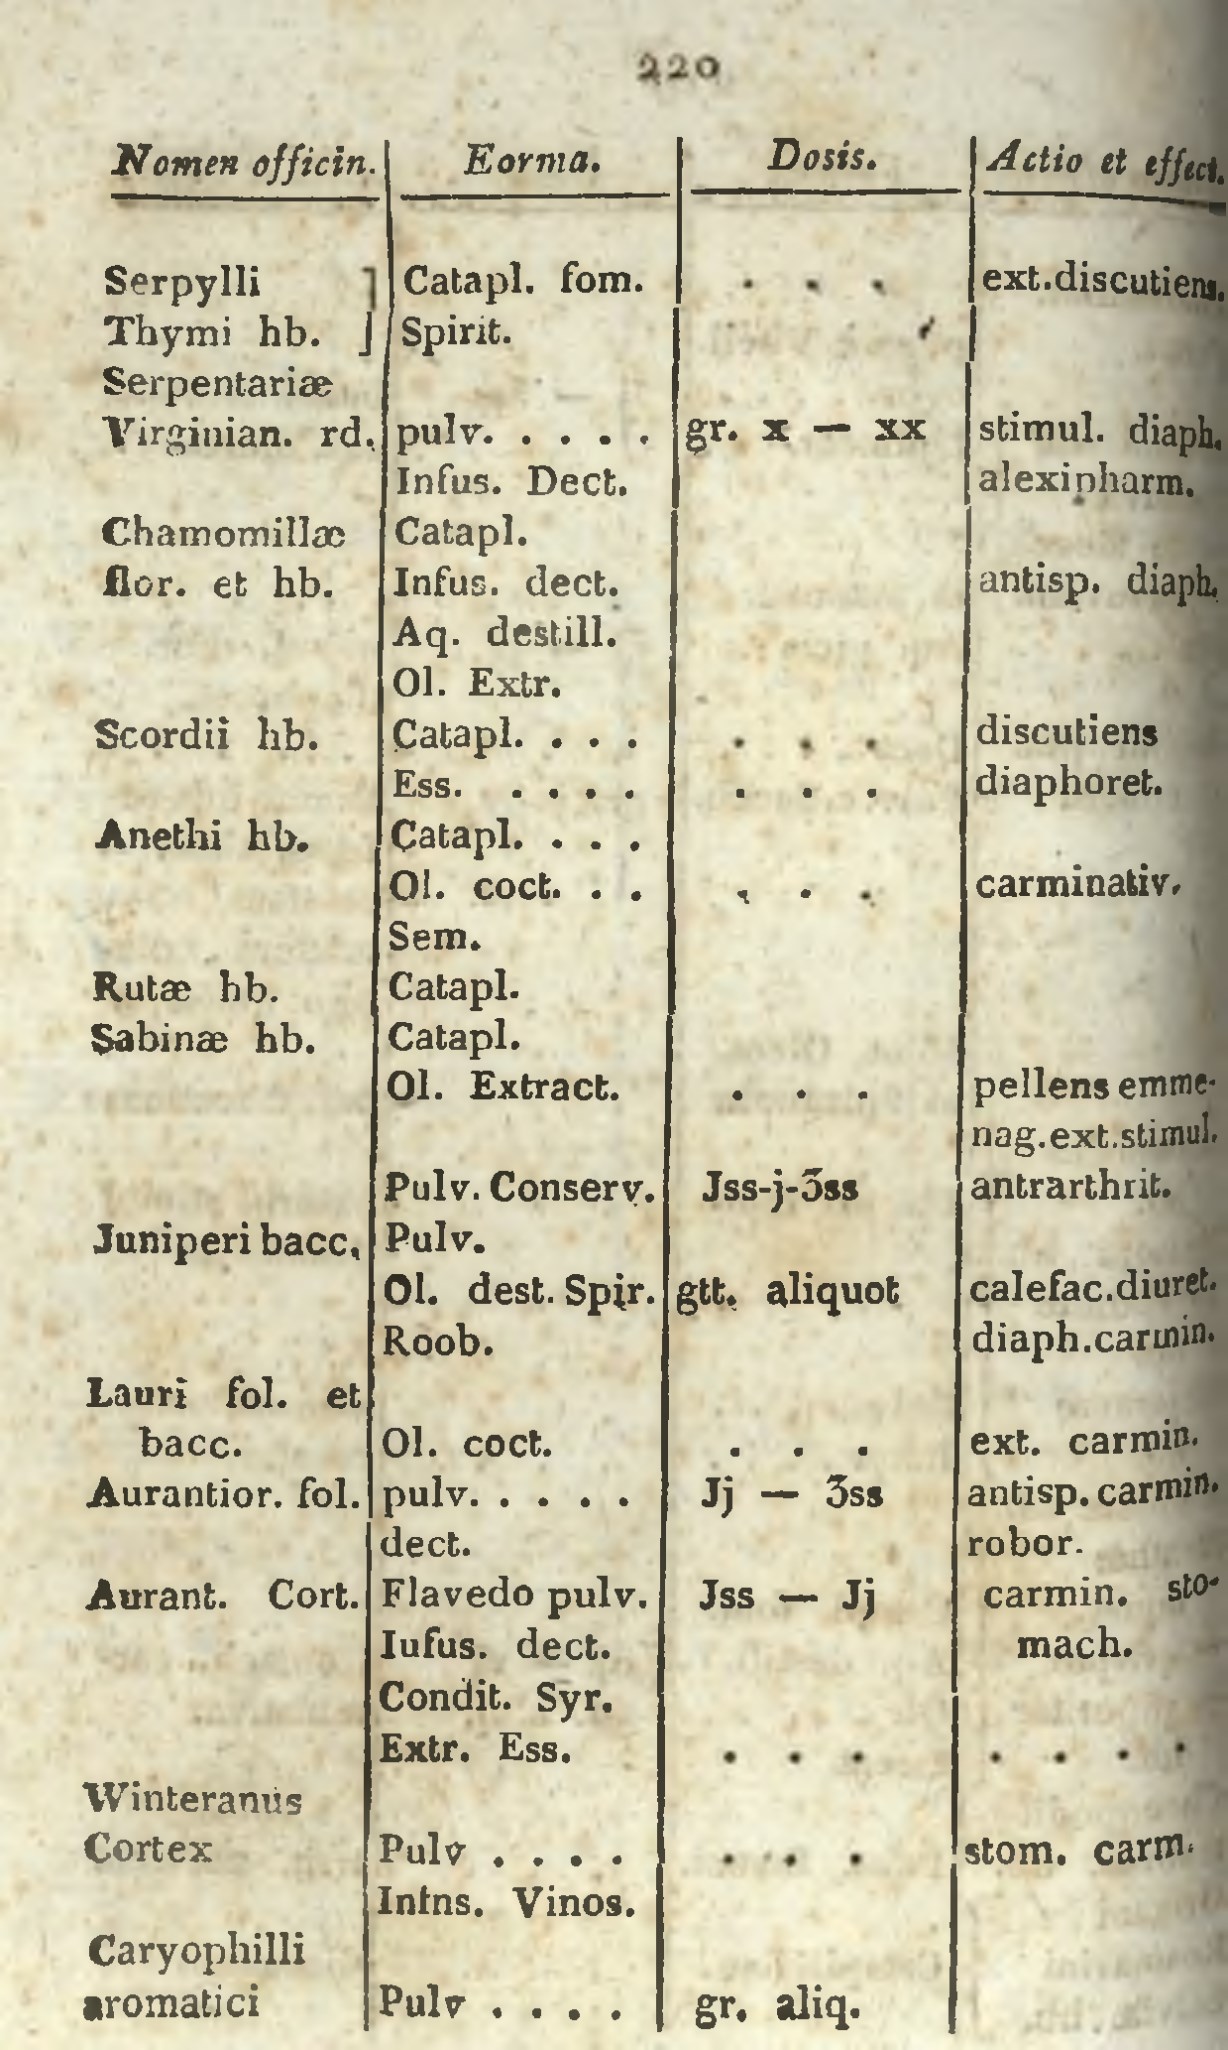 220
Nomen officin. Eorma. Dosis. Actio et effect.
Serpylli ] Catapl. fom. . . . ext.discutiens.
Thymi hb. ] Spirit.
Serpentariæ
Virginian. rd. pulv. . . . . gr. x — xx stimul. diaph.
Infus. Dect. alexipharm.
Chamomillæ Catapl.
flor. et hb. Infus. dect. antisp. diaph.
Aq. destill.
Ol. Extr.
Scordii hb. Catapl. . . . . . . discutiens
Ess. . . . . . . . diaphoret.
Anethi hb. Catapl. . . .
Ol. coct. . . . . . carminativ.
Sem.
Rutæ hb. Catapl.
Sabinæ hb. Catapl.
Ol. Extract. . . . pellens emme-
nag.ext.stimul.
Pulv. Conserv. Jss-j-Ʒss antrarthrit.
Juniperi bacc. Pulv.
Ol. dest. Spir. gtt. aliquot calefac.diuret.
Roob. diaph.carmin.
Lauri fol. et
bacc. Ol. coct. . . . ext. carmin.
Aurantior. fol. pulv. . . . . Jj — Ʒss antisp. carmin.
dect. robor.
Aurant. Cort. Flavedo pulv. Jss — Jj carmin. sto-
Iufus. dect. mach.
Condit. Syr.
Extr. Ess. . . . . . . .
Winteranus
Cortex Pulv . . . . . . . stom. carm.
Infns. Vinos.
Caryophilli
aromatici Pulv . . . . gr. aliq.